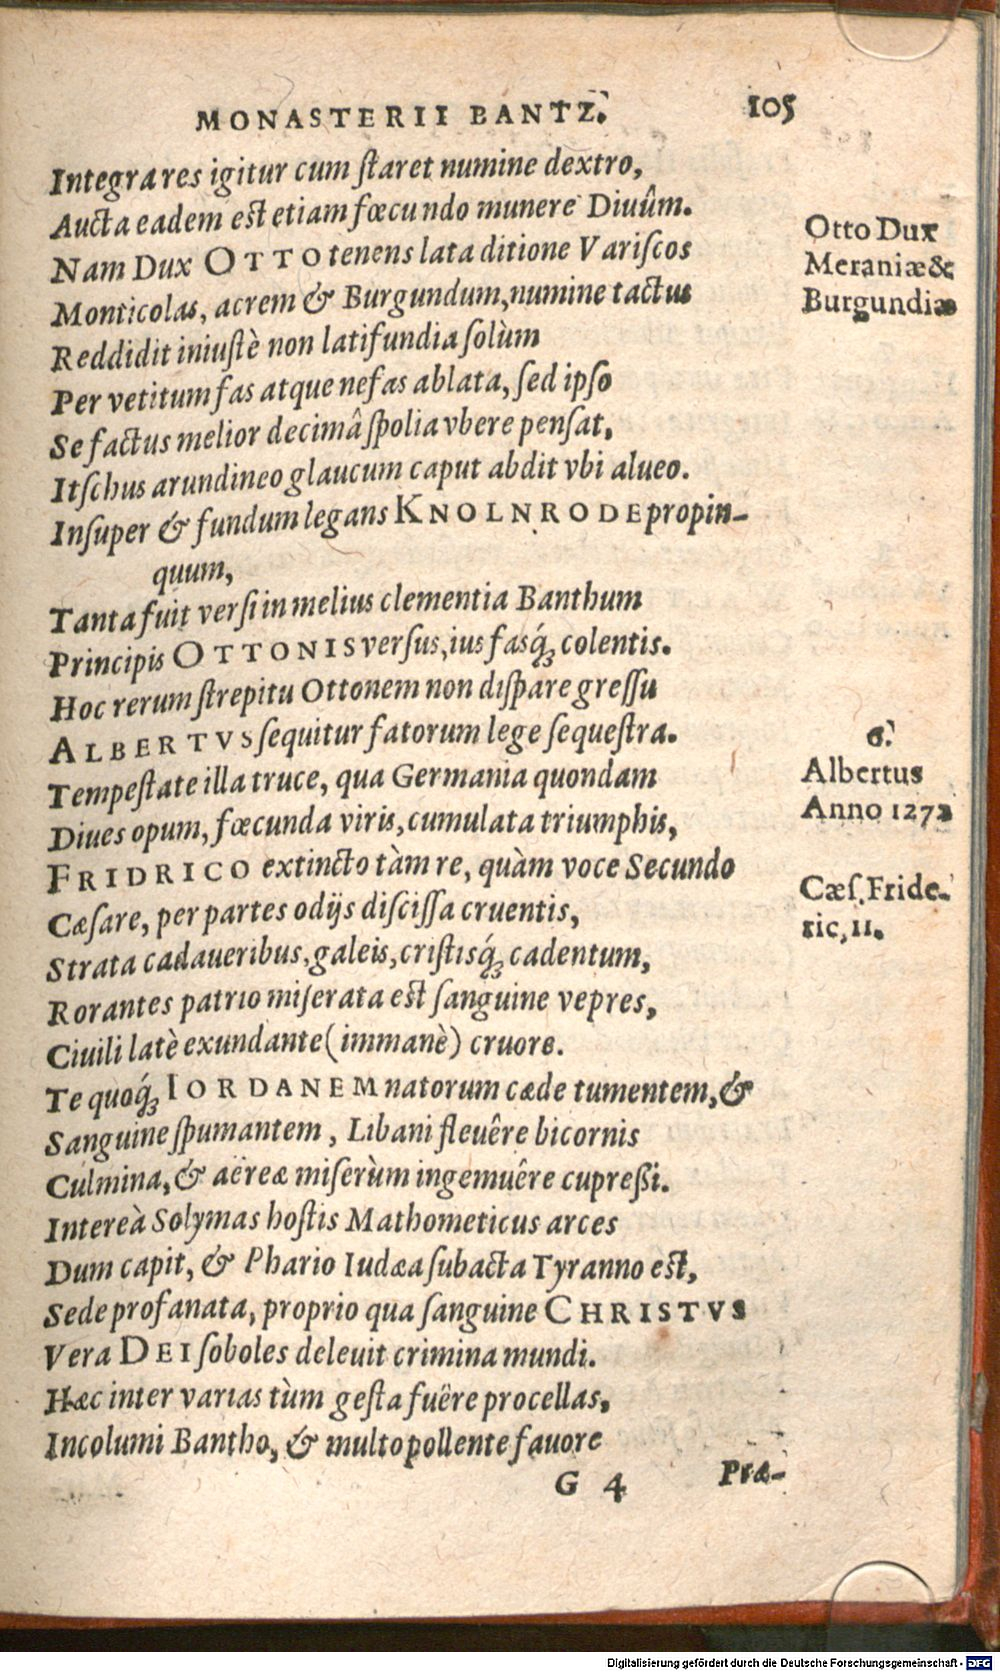 MONASTERII BANTZ. 105
Integra res igitur cum ſtaret numine dextro,
Aucta eadem est etiam fœcundo munere Diuûm.
Nam Dux OTTO tenens lata ditione Variſcos
Monticolas, acrem & Burgundum, numine tactus
Reddidit iniuſtè non latifundia ſolùm
Per vetitum fas atque nefas ablata, ſed ipſo
Se factus melior decimâ ſpolia vbere penſat,
Itſchus arundineo glaucum caput abdit vbi alueo.
Inſuper & fundum legans KNOLNRODE propin-
quum,
Tanta fuit verſi in melius clementia Banthum
Principis OTTONIS verſus, ius fasq́; colentis.
Hoc rerum ſtrepitu Ottonem non diſpare greſſu
ALBERTVS ſequitur fatorum lege ſequeſtra.
Tempeſtate illa truce, qua Germania quondam
Diues opum, fœcunda viris, cumulata triumphis,
FRIDRICO extincto tàm re, quàm voce Secundo
Cæſare, per partes odijs diſciſſa cruentis,
Strata cadaueribus, galeis, criſtisq́; cadentum,
Rorantes patrio miſerata est ſanguine vepres,
Ciuili latè exundante (immanè) cruore.
Te quoq́; IORDANEM natorum cæde tumentem, &
Sanguine ſpumantem, Libani fleuêre bicornis
Culmina, & aëreæ miſerùm ingemuêre cupreßi.
Intereà Solymas hoſtis Mathometicus arces
Dum capit, & Phario Iudæa ſubacta Tyranno est,
Sede profanata, proprio qua ſanguine CHRISTVS
Vera DEI ſoboles deleuit crimina mundi.
Hæc inter varias tùm geſta fuêre procellas,
Incolumi Bantho, & multo pollente fauore
G 4 Præ-
Otto Dux
Meraniæ &
Burgundiæ
6.
Albertus
Anno 1272
Cæſ. Fride-
ric, II.
Digitalisierung gefördert durch die Deutsche Forschungsgemeinschaft - DFG